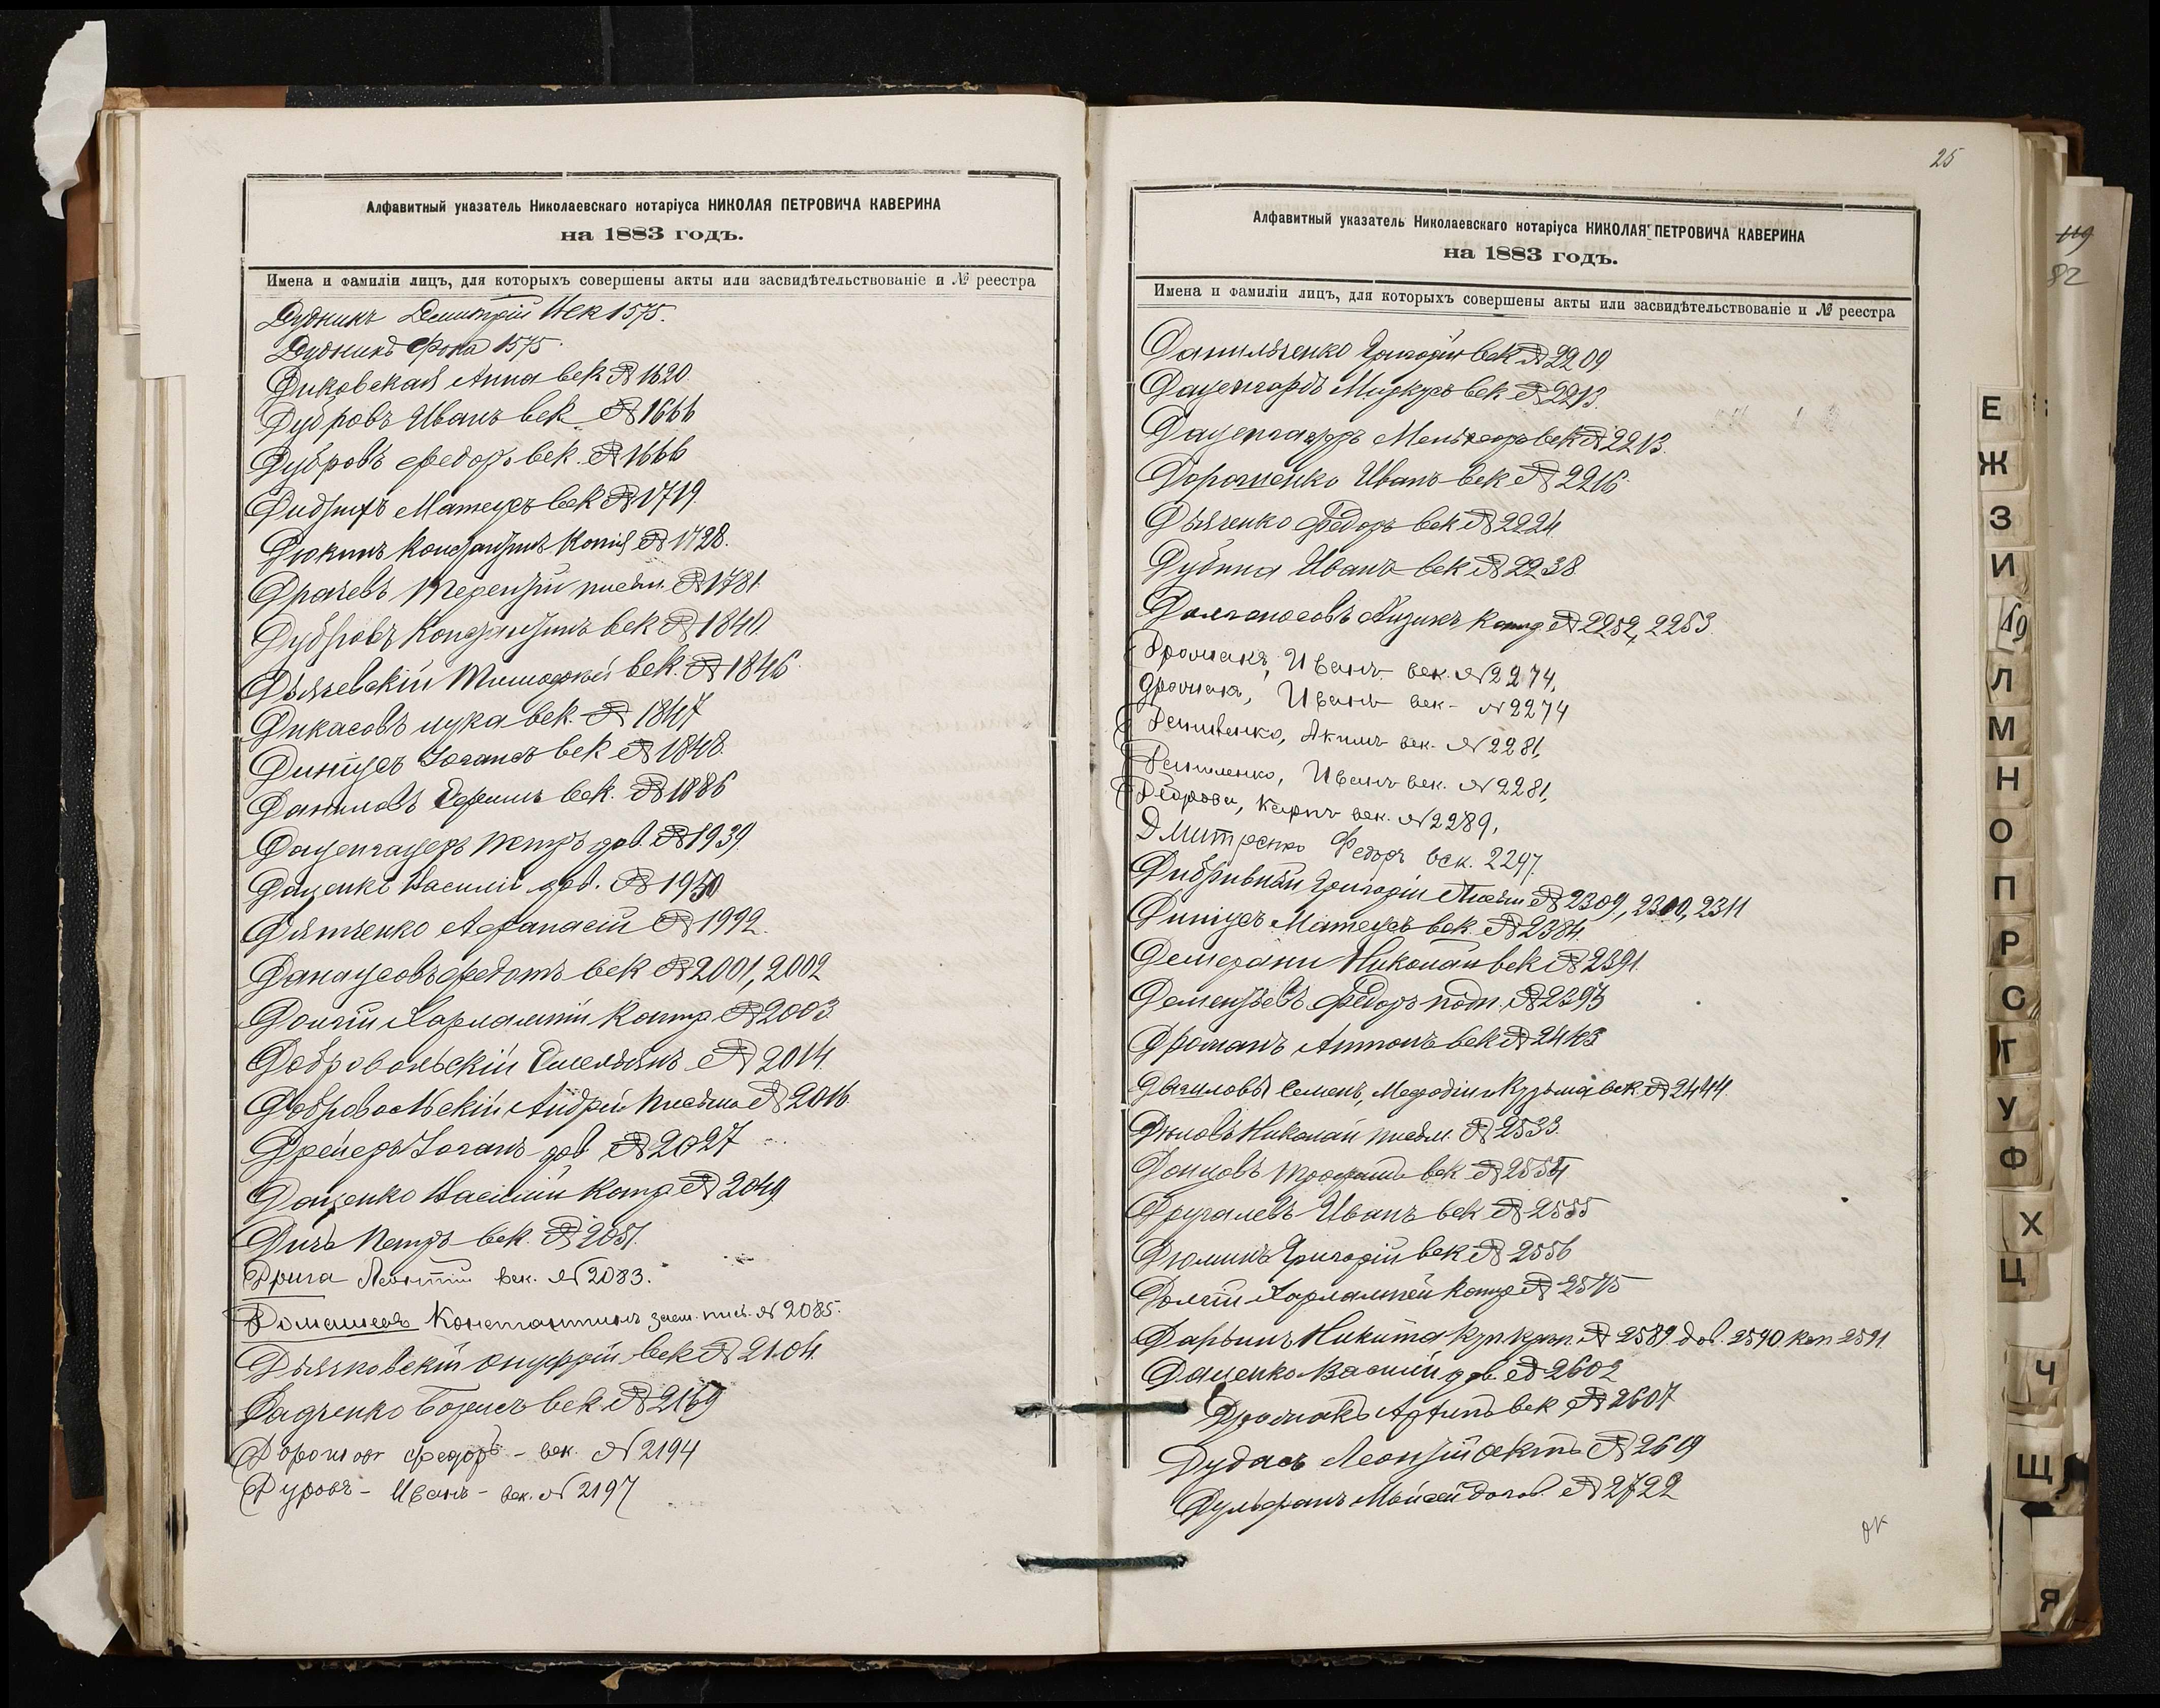 Алфавитный указатель Николаевскаго нотаріуса НИКОЛАЯ ПЕТРОВИЧА КАВЕРИНА
на 1883 годъ.
Имена и фамиліи лицъ, для которыхъ совершены акты или засвидѣтельствованіе и № реестра
Дудникъ Димитрій Век 1575.
Дудникъ Фока 1575
Диковская Анна век № 1620
Дубровъ Иванъ век № 1666
Дубровъ Федоръ век. № 1666
Дидрихъ Матеусъ век № 1719.
Дюкинъ Константинъ копія № 1728.
Драчевъ Терентій письм. № 1781
Дубровъ Константинъ век № 1840.
Дьячевскій Тимофей век. № 1846
Дикасовъ Лука век. № 1847
Динiусъ Іогансъ век № 1848.
Даниловъ Ефимъ век. № 1886
Даценгауеръ Петръ дов. № 1939
Даценко Василій дов. № 1950
Дятченко Афанасій № 1992.
Данаусовъ Федотъ век № 2001, 2002
Долгій Харлампій контр № 2003
Добровольскій Емельянъ № 2014.
Добровольскій Андрей письмо № 2016
Дрейеръ Іоганъ дов № 2027
Даценко Василій контр № 2049
Дичь Петръ век. № 2051.
Дрига Леонтій век. № 2083.
Домашевъ Константинъ заем. пис. № 2085.
Дьячковскій Онуфрій век № 2104.
Дадченко Борисъ век № 2169
Дороновъ Федоръ - век. № 2194
Дуровъ - Иванъ - век. № 2197
25
Алфавитный указатель Николаевскаго нотаріуса НИКОЛАЯ ПЕТРОВИЧА КАВЕРИНА
на 1883 годъ.
Имена и фамиліи лицъ, для которыхъ совершены акты или засвидѣтельствованіе и № реестра
Данильченко Григорій век № 2209
Даценгардъ Маркусъ век № 2213.
Даценгардъ Мельхеоръ век № 2213.
Дорошенко Иванъ век № 2216
Дьяченко Федоръ век № 2224.
Дубина Иванъ век № 2238
Долгоносовъ контр № 2252, 2253.
Дромакъ, Иванъ век. № 2274,
Дромакъ, Иванъ век - № 2274
Демивенко, Акимъ век. № 2281,
Демиленко, Иванъ век. № 2281,
Деброва, Карпъ век. № 2289,
Дмитренко Федоръ век. 2297.
Дибривный Григорій письм № 2309, 2310, 2311
Динiусъ Матеусъ век. № 2384.
Демерани Николай век № 2391.
Дементьевъ Федоръ пот. № 2395
Дроманъ Антонъ век № 2443
Даниловы Семенъ, Мефодій и Кузьма век. № 2444.
Дюловъ Николай письм. № 2533.
Донцовъ Трофимъ век № 2554
Другалевъ Иванъ век № 2555
Дюминъ Григорій век № 2556
Долгій Харлампій контр № 2575
Дарьинъ Никита куп крѣп. № 2589. дов. 2590 коп 2591
Даценко Василій дов. № 2602
Дромакъ Архипъ век № 2607
Дудасъ Леонтій актъ № 2619
Дульфанъ Мойсей догов. № 2722
ок
119
82
Е
Ж
З
И
Л
М
Н
О
П
Р
С
Т
У
Ф
Х
Ц
Ч
Щ
Я